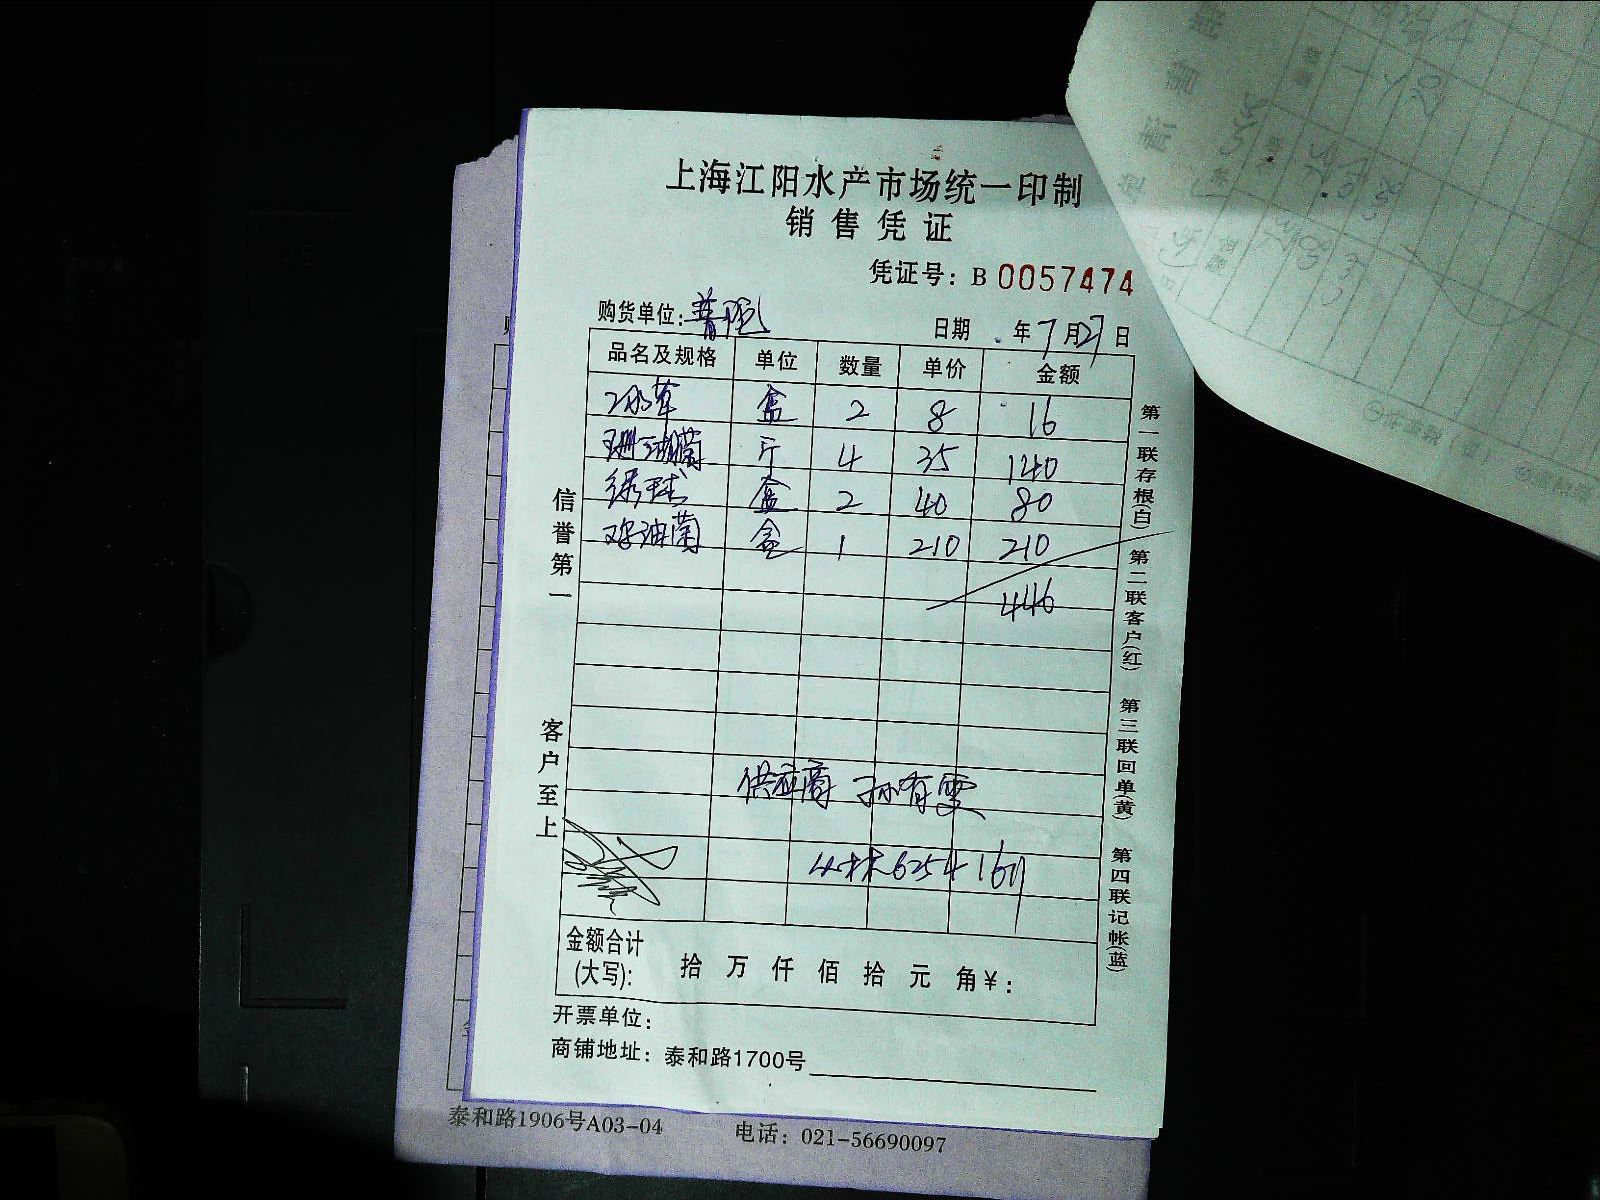 上海江阳水产市场统一印制
销售凭证
凭证号：B 0057474
购货单位：普陀
日期 年7月27日
品名及规格 单位 数量 单价 金额
冰草 盒 2 8 16
珊瑚菌 斤 4 35 140
绣球 盒 2 40 80
鸡油菌 盒 1 210 210
446
供应商 孙有雯
6254 1611
金额合计
(大写)： 拾 万 仟 佰 拾 元 角￥：
开票单位：
商铺地址：泰和路1700号
信誉第一
客户至上
第一联存根(白) 第二联客户(红) 第三联回单(黄) 第四联记帐(蓝)
泰和路1906号A03-04 电话：021-56690097